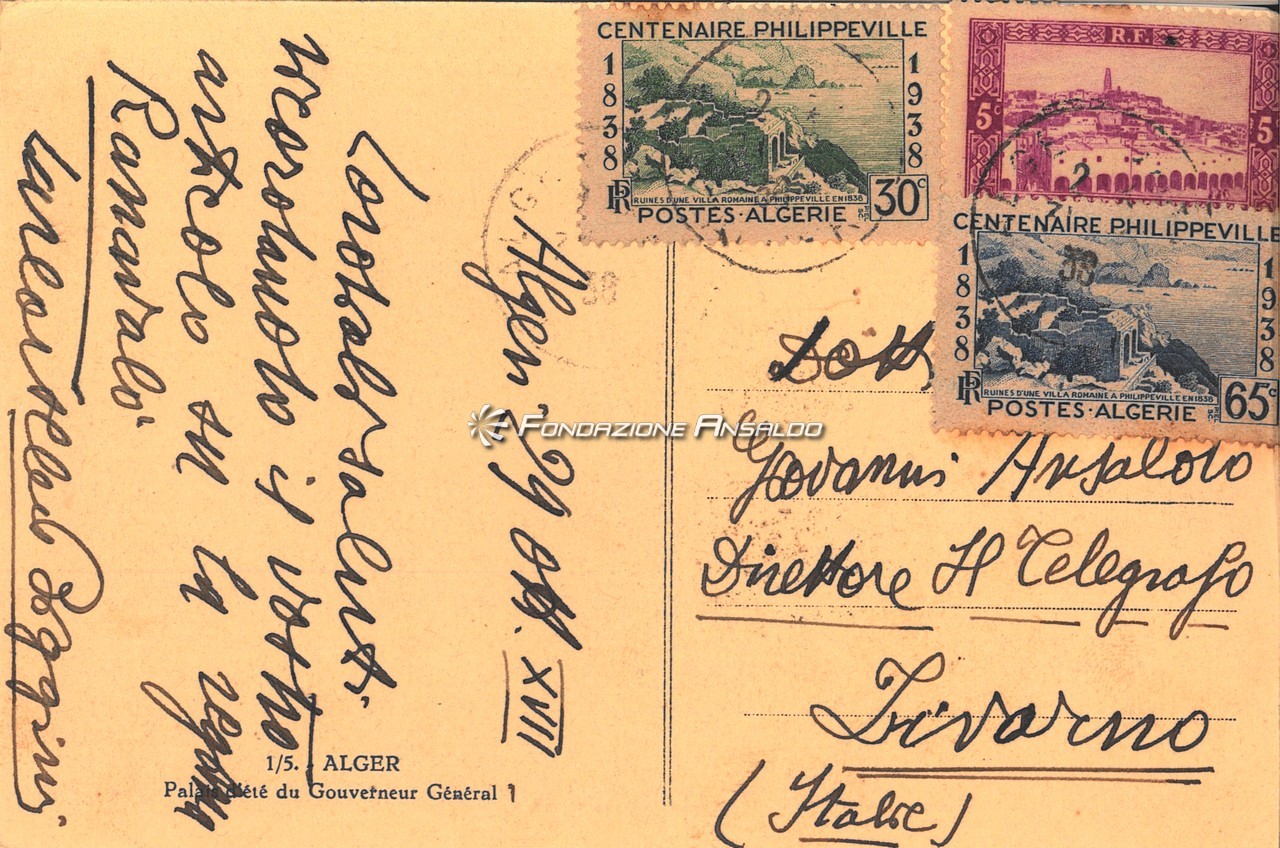 CENTENAIRE PHILIPPEVILLE
1838
1938
RUINES D'UNE VILLA ROMAINE A PHILIPPEVILLE EN 1838
30c
POSTES-ALGERIE
R.F.
5c
5c
CENTENAIRE PHILIPPEVILLE
1838
1938
RUINES D'UNE VILLA ROMAINE A PHILIPPEVILLE EN 1838
65c
POSTES-ALGERIE
Alger, 29 ott. XVII
Cordiali saluti
ricordando il vostro
articolo su la regina
Ranavalo
Dott
Giovanni Ansaldo
Direttore Il Telegrafo
Livorno
(Italie)
FONDAZIONE ANSALDO
1/5. - ALGER
Palais d'été du Gouverneur Général